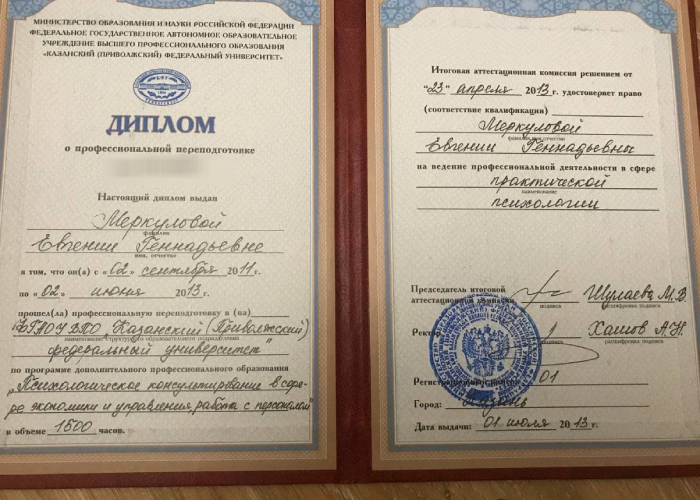 МИНИСТЕРСТВО ОБРАЗОВАНИЯ И НАУКИ РОССИЙСКОЙ ФЕДЕРАЦИИ
ФЕДЕРАЛЬНОЕ ГОСУДАРСТВЕННОЕ АВТОНОМНОЕ ОБРАЗОВАТЕЛЬНОЕ
УЧРЕЖДЕНИЕ ВЫСШЕГО ПРОФЕССИОНАЛЬНОГО ОБРАЗОВАНИЯ
«КАЗАНСКИЙ (ПРИВОЛЖСКИЙ) ФЕДЕРАЛЬНЫЙ УНИВЕРСИТЕТ»
ДИПЛОМ
о профессиональной переподготовке
Настоящий диплом выдан
Меркуловой
фамилия
Евгении Геннадьевне
имя, отчество
в том, что он(а) с «02» сентября 2011г.
по «02» июня 2013г.
прошел(ла) профессиональную переподготовку в (на)
ФГАОУ ВПО „Казанский (Приволжский)
наименование структурного образовательного подразделения
федеральный университет"
по программе дополнительного профессионального образования
„Психологическое консультирование в сфе-
ре экономики и управления, работа с персоналом"
в объеме 1500 часов.
Итоговая аттестационная комиссия решением от
"23" апреля 2013г. удостоверяет право
(соответствие квалификации)
Меркуловой
фамилия, имя, отчество
Евгении Геннадьевны
на ведение профессиональной деятельности в сфере
практической
наименование
психологии
Председатель итоговой
аттестационной комиссии Шулаева М.В.
подпись расшифровка подписи
Ректор
подпись расшифровка подписи
Регистрационный номер 01
Город:
Дата выдачи: 01 июля 2013г.